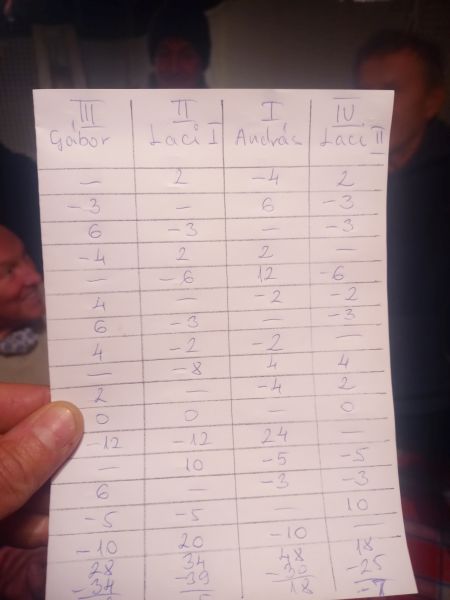 III II I IV
Gábor Laci I András Laci II
— 2 -4 2
-3 — 6 -3
6 -3 — -3
-4 2 2 —
— -6 12 -6
4 — -2 -2
6 -3 — -3
4 -2 -2 —
— -8 4 4
2 — -4 2
0 0 — 0
-12 -12 24 —
— 10 -5 -5
6 — -3 -3
-5 -5 — 10
-10 20 -10 —
28 34 48 18
-34 -39 -30 -25
18 -7